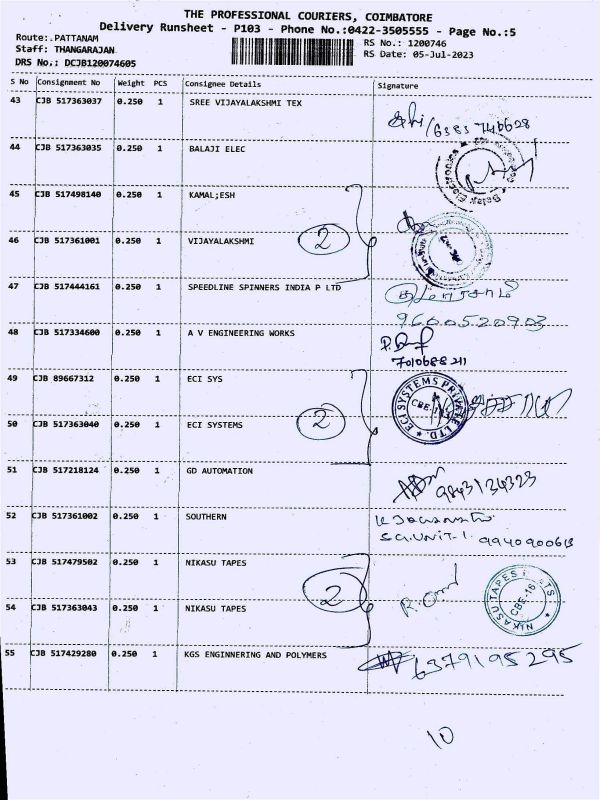 THE PROFESSIONAL COURIERS, COIMBATORE
Delivery Runsheet - P103 - Phone No.:0422-3505555 - Page No.:5
Route:.PATTANAM
RS No.: 1200746
Staff: THANGARAJAN
RS Date: 05-Jul-2023
DRS No.: DCJB120074605
S No Consignment No Weight PCS Consignee Details Signature
43 CJB 517363037 0.250 1 SREE VIJAYALAKSHMI TEX
44 CJB 517363035 0.250 1 BALAJI ELEC
45 CJB 517498140 0.250 1 KAMAL;ESH
46 CJB 517361001 0.250 1 VIJAYALAKSHMI 2
47 CJB 517444161 0.250 1 SPEEDLINE SPINNERS INDIA P LTD
9660520903
48 CJB 517334600 0.250 1 A V ENGINEERING WORKS
49 CJB 89667312 0.250 1 ECI SYS
ECI SYSTEMS PRIVATE LTD.
50 CJB 517363040 0.250 1 ECI SYSTEMS 2
51 CJB 517218124 0.250 1 GD AUTOMATION 9843134323
52 CJB 517361002 0.250 1 SOUTHERN
UNIT-1
53 CJB 517479502 0.250 1 NIKASU TAPES
NIKASU TAPES CBE-16
2
54 CJB 517363043 0.250 1 NIKASU TAPES
55 CJB 517429280 0.250 1 KGS ENGINNERING AND POLYMERS 6379195295
10